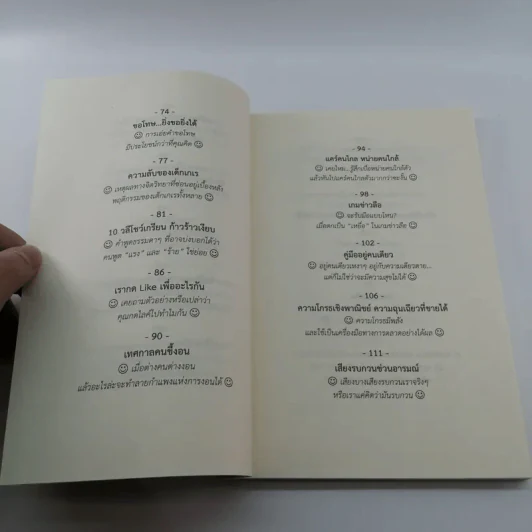 - 74 -
ขอโทษ...ยิ่งขอยิ่งได้
☺ การเอ่ยคำขอโทษ
มีประโยชน์กว่าที่คุณคิด ☺
- 77 -
ความลับของเด็กเกเร
☺ เหตุผลทางจิตวิทยาที่ซ่อนอยู่เบื้องหลัง
พฤติกรรมของเด็กเกเรทั้งหลาย ☺
- 81 -
10 วลีโชว์เกรียน ก้าวร้าวเงียบ
☺ คำพูดธรรมดาๆ ที่อาจบ่งบอกได้ว่า
คนพูด "แรง" และ "ร้าย" ใช่ย่อย ☺
- 86 -
เรากด Like เพื่ออะไรกัน
☺ เคยถามตัวเองหรือเปล่าว่า
คุณกดไลค์ไปทำไมกัน ☺
- 90 -
เทศกาลคนขี้งอน
☺ เมื่อต่างคนต่างงอน
แล้วอะไรล่ะจะทำลายกำแพงแห่งการงอนได้ ☺
- 94 -
แคร์คนไกล หน่ายคนใกล้
☺ เคยไหม...รู้สึกเบื่อหน่ายคนใกล้ตัว
แล้วหันไปแคร์คนไกลตัวมากกว่าซะงั้น ☺
- 98 -
เกมข่าวลือ
☺ จะรับมือแบบไหน?
เมื่อตกเป็น "เหยื่อ" ในเกมข่าวลือ ☺
- 102 -
คู่มืออยู่คนเดียว
☺ อยู่คนเดียวเหงาๆ อยู่กับความเดียวดาย...
แต่ก็ไม่ใช่ว่าจะมีความสุขไม่ได้ ☺
- 106 -
ความโกรธเชิงพาณิชย์ ความฉุนเฉียวที่ขายได้
☺ ความโกรธมีพลัง
และใช้เป็นเครื่องมือทางการตลาดอย่างได้ผล ☺
- 111 -
เสียงรบกวนชวนอารมณ์
☺ เสียงบางเสียงรบกวนเราจริงๆ
หรือเราแค่คิดว่ามันรบกวน ☺